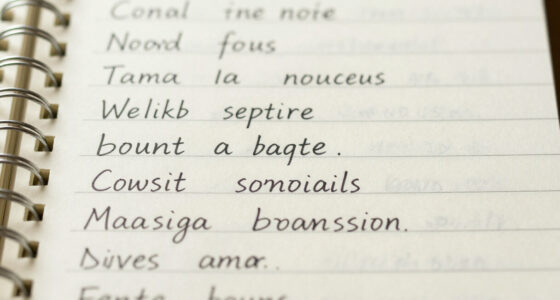 Conal ine noie
Noord fous
Tama la nouceus
Welikb septire
bount a baqte.
Cowsit sonoiails
Maasiga boanssion.
Dives amar..